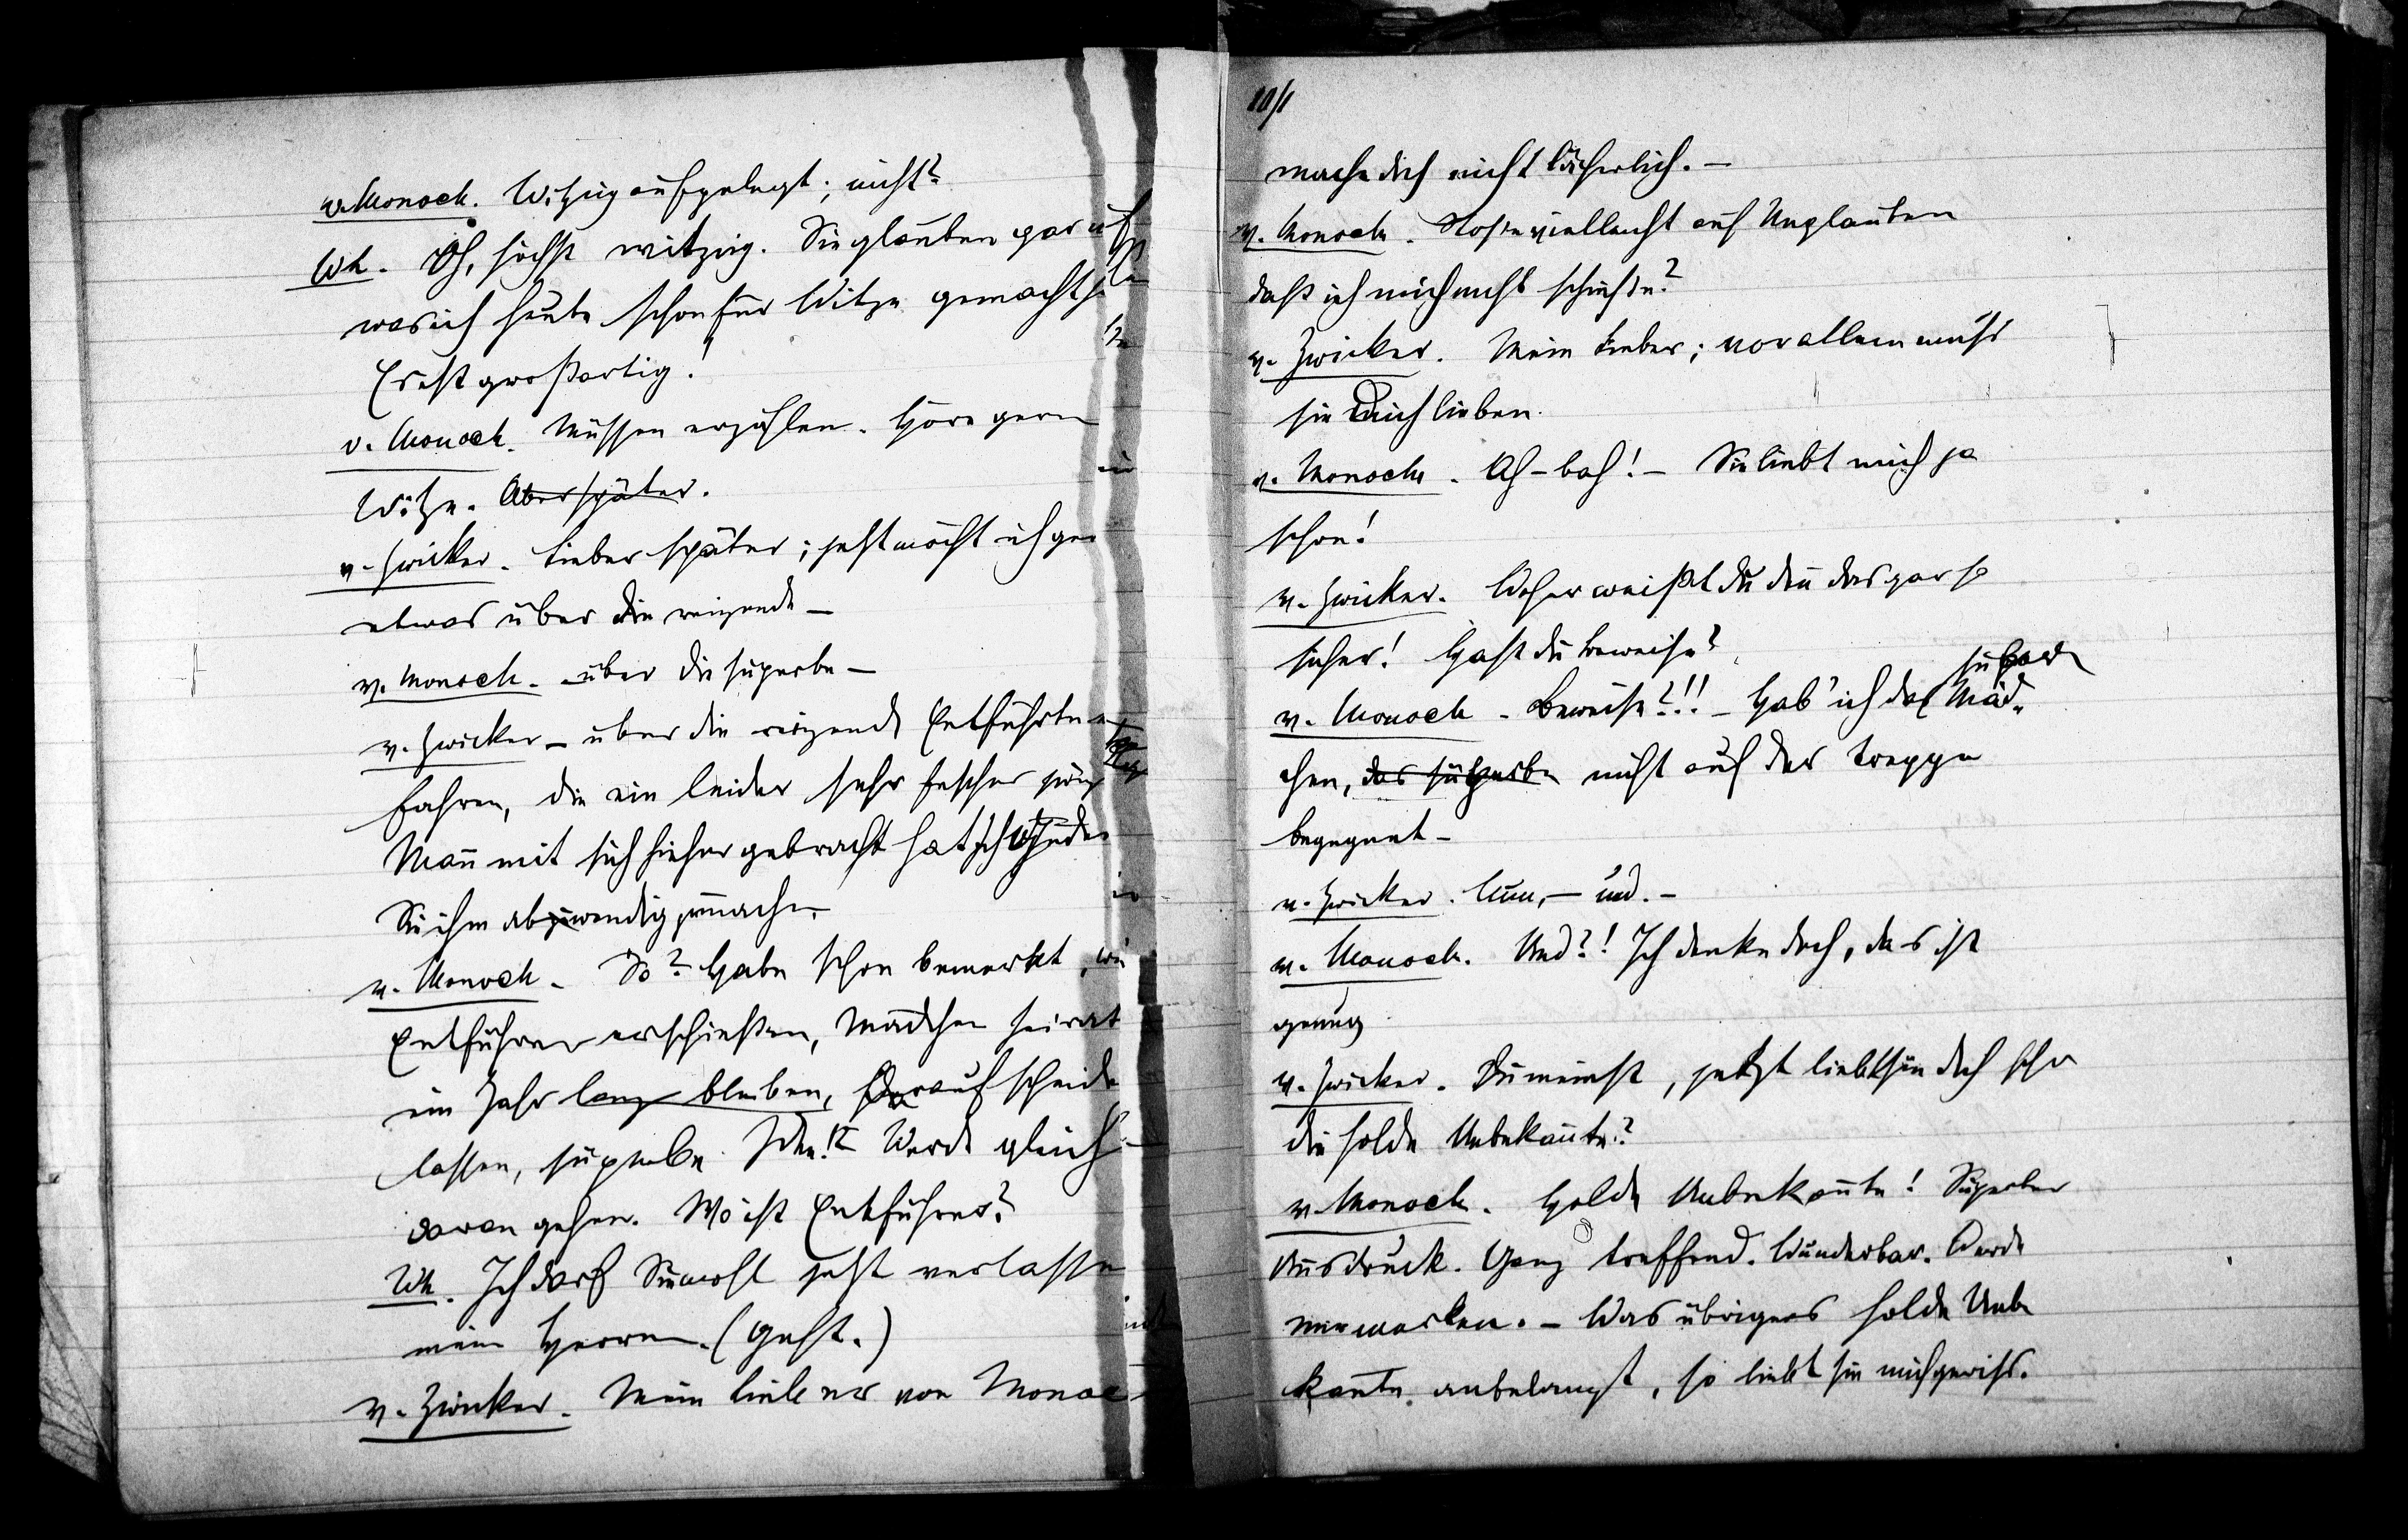 v. Monock. Witzig aufgelegt; nicht?
Wh. Oh, höchst witzig. Sie glauben gar
was ich heute schon für Witze gemacht
Es ist großartig!
v. Monock. Müssen erzählen. Höre gern
Witze. Aber später.
v. Zwicker. Lieber später; jetzt möcht ich
etwas über die reizende –
v. Monock. – über die superbe –
v. Zwicker – über die reizende Entführte
fahren, die ein leider sehr fescher
Mañ mit sich hieher gebracht hat
Sie ihm abwendig machen
v. Monock. So? Habe schon bemerkt, wie
Entführer erschießen, Mädchen heirat
ein Jahr lang bleiben, darauf scheide
lassen, superbe Idee! – Werde gleich
daran gehen. Wo ist Entführer?
Wh. Ich darf Sie wohl jetzt verlassen
mein Herren. (Geht.)
v. Zwicker. Mein lieber von Monoc
10/1
mache dich nicht lächerlich. –
v. Monock. Stoße vielleicht auf Unglauben
daß ich mich nicht schieße?
v. Zwicker. Mein Lieber; vor allem muß
sie Dich lieben.
v. Monock. Ah – bah! – Sie liebt mich ja
schon!
v. Zwicker. Woher weißt du deñ das gar so
sicher! Hast du Beweise?
superbe
v. Monock. Beweise?!! – Hab' ich das Mäd-
chen, das superbe nicht auf der Treppe
begegnet –
v. Zwicker. Nun, – und. –
v. Monock. Und?! Ich denke doch, das ist
genug
v. Zwicker. Du meinst, jetzt liebt sie dich schon
die holde Unbekañte?
v. Monock. Holde Unbekañte! Superber
Ausdruck. Ganz treffend. Wunderbar. Werde
mir merken. – Was übrigens holde Unbe
kañte anbelangt, so liebt sie mich gewiß.